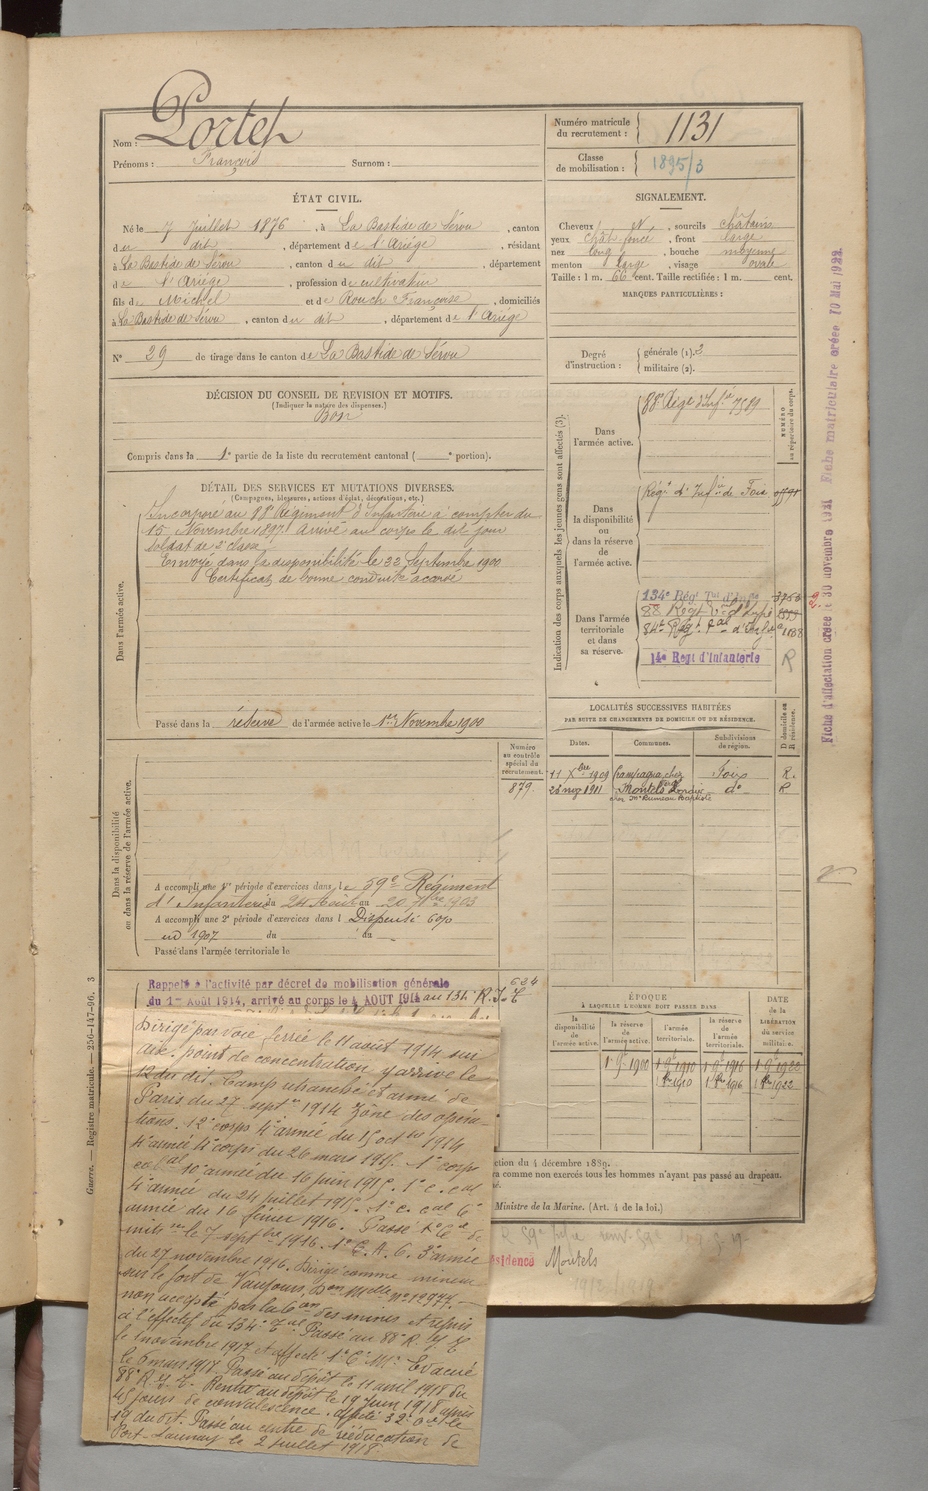 Nom : Portet
Prénoms : François Surnom :
Numéro matricule du recrutement : 1131
Classe de mobilisation : 1895/3
ÉTAT CIVIL.
Né le 7 Juillet 1876, à La Bastide de Sérou, canton
du dit, département de l'Ariège, résidant
à La Bastide de Sérou, canton du dit, département
de l'Ariège, profession de cultivateur
fils de Michel et de Rouch Françoise, domiciliés
à La Bastide de Sérou, canton du dit, département de l'Ariège
N° 29 de tirage dans le canton de La Bastide de Sérou
SIGNALEMENT.
Cheveux N, sourcils châtains
yeux chât. foncé, front large
nez long, bouche moyenne
menton large, visage ovale
Taille : 1 m. 66 cent. Taille rectifiée : 1 m. cent.
MARQUES PARTICULIÈRES :
Degré d'instruction : générale (1). 2
militaire (2).
DÉCISION DU CONSEIL DE REVISION ET MOTIFS.
(Indiquer la nature des dispenses.)
Bon
Compris dans la 1e partie de la liste du recrutement cantonal ( e portion).
DÉTAIL DES SERVICES ET MUTATIONS DIVERSES.
(Campagnes, blessures, actions d'éclat, décorations, etc.)
Dans l'armée active.
Incorporé au 88e Régiment d'Infanterie à compter du
15 Novembre 1897. Arrivé au corps le dit jour
soldat de 2e classe
Envoyé dans la disponibilité le 22 Septembre 1900
Certificat de bonne conduite accordé
Passé dans la réserve de l'armée active le 1er Novembre 1900
Indication des corps auxquels les jeunes gens sont affectés (3).
NUMÉRO au répertoire du corps.
Dans l'armée active.
88e Rég. d'Infie 7589
Dans la disponibilité ou dans la réserve de l'armée active.
Régt d'Infie de Foix
Dans l'armée territoriale et dans sa réserve.
134e Régt Tal d'Infie
88 Régt
84e Régt Tal d'Infie
14e Régt d'Infanterie R
Fiche d'affectation créée le 30 novembre 1921 Fiche matriculaire créée 10 Mai 1922
LOCALITÉS SUCCESSIVES HABITÉES
PAR SUITE DE CHANGEMENTS DE DOMICILE OU DE RÉSIDENCE.
Dates. Communes. Subdivisions de région. D domicile ou R résidence.
11 Xbre 1909 Foix R.
28 1911 Montels do R
Numéro au contrôle spécial du recrutement.
879.
Dans la disponibilité ou dans la réserve de l'armée active.
A accompli une 1re période d'exercices dans le 59e Régiment
d'Infanterie du 24 Août au 20 7bre 1903
A accompli une 2e période d'exercices dans l Dispensé
en 1907 du au
Passé dans l'armée territoriale le
Rappelé à l'activité par décret de mobilisation générale
du 1er Août 1914, arrivé au corps le 4 AOUT 1914 au 134e R.I.T
624
Dirigé par voie ferrée le 11 août 1914 sur
point de concentration y arrive le
12 du dit. Camp retranché et armée de
Paris du 27 septre 1914 zone des opéra-
tions. 12e corps 4e armée du 15 octbre 1914
4e armée 4e corps du 26 mars 1915. 1er corps
cal 10e armée du 16 juin 1915. 1er c. cal
4e armée du 24 juillet 1915. 1er c. cal 6e
armée du 16 février 1916. Passé
le 7 septbre 1916. 1er C.A.C. 3e armée
du 27 novembre 1916. Dirigé comme mineur
sur le fort de Vaujours, Don Mlle n° 12977.
non accepté par la Con des mines et repris
à l'effectif du 134e Tal. Passé au 88e R.I.T.
le 1 novembre 1917 et affecté 1e C. Mr. Evacué
le 6 mars 1917. Passé au dépôt le 11 avril 1918 du
88e R.I.T. Rentré au dépôt le 19 juin 1918 après
45 jours de convalescence. affecté 32e le
19 du dit. Passé au centre de rééducation de
Port-Launay le 2 juillet 1918.
ÉPOQUE
À LAQUELLE L'HOMME DOIT PASSER DANS
la disponibilité de l'armée active. la réserve de l'armée active. l'armée territoriale. la réserve de l'armée territoriale. DATE de la LIBÉRATION du service militaire.
1 9bre 1900 1 9bre 1910 1 9bre 1916 1 9bre 1922
1 1910 1 1916 1 1922
ction du 4 décembre 1889.
ra comme non exercés tous les hommes n'ayant pas passé au drapeau.
Ministre de la Marine. (Art. 4 de la loi.)
ésidence Montels
Guerre. — Registre matricule. — 256-147-96. 3